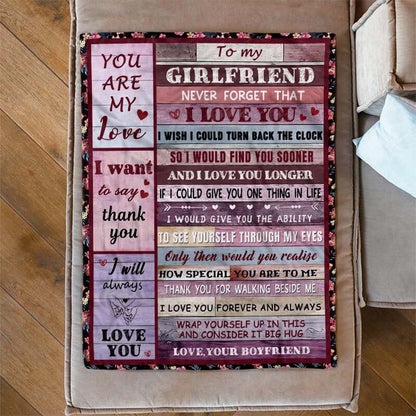 YOU ARE
MY
Love
I want
to say
thank
you
I will
always
LOVE
YOU
To my
GIRLFRIEND
NEVER FORGET THAT
I LOVE YOU
I WISH I COULD TURN BACK THE CLOCK
SO I WOULD FIND YOU SOONER
AND I LOVE YOU LONGER
IF I COULD GIVE YOU ONE THING IN LIFE
I WOULD GIVE YOU THE ABILITY
TO SEE YOURSELF THROUGH MY EYES
Only then would you realise
HOW SPECIAL YOU ARE TO ME
THANK YOU FOR WALKING BESIDE ME
I LOVE YOU FOREVER AND ALWAYS
WRAP YOURSELF UP IN THIS
AND CONSIDER IT BIG HUG
LOVE, YOUR BOYFRIEND